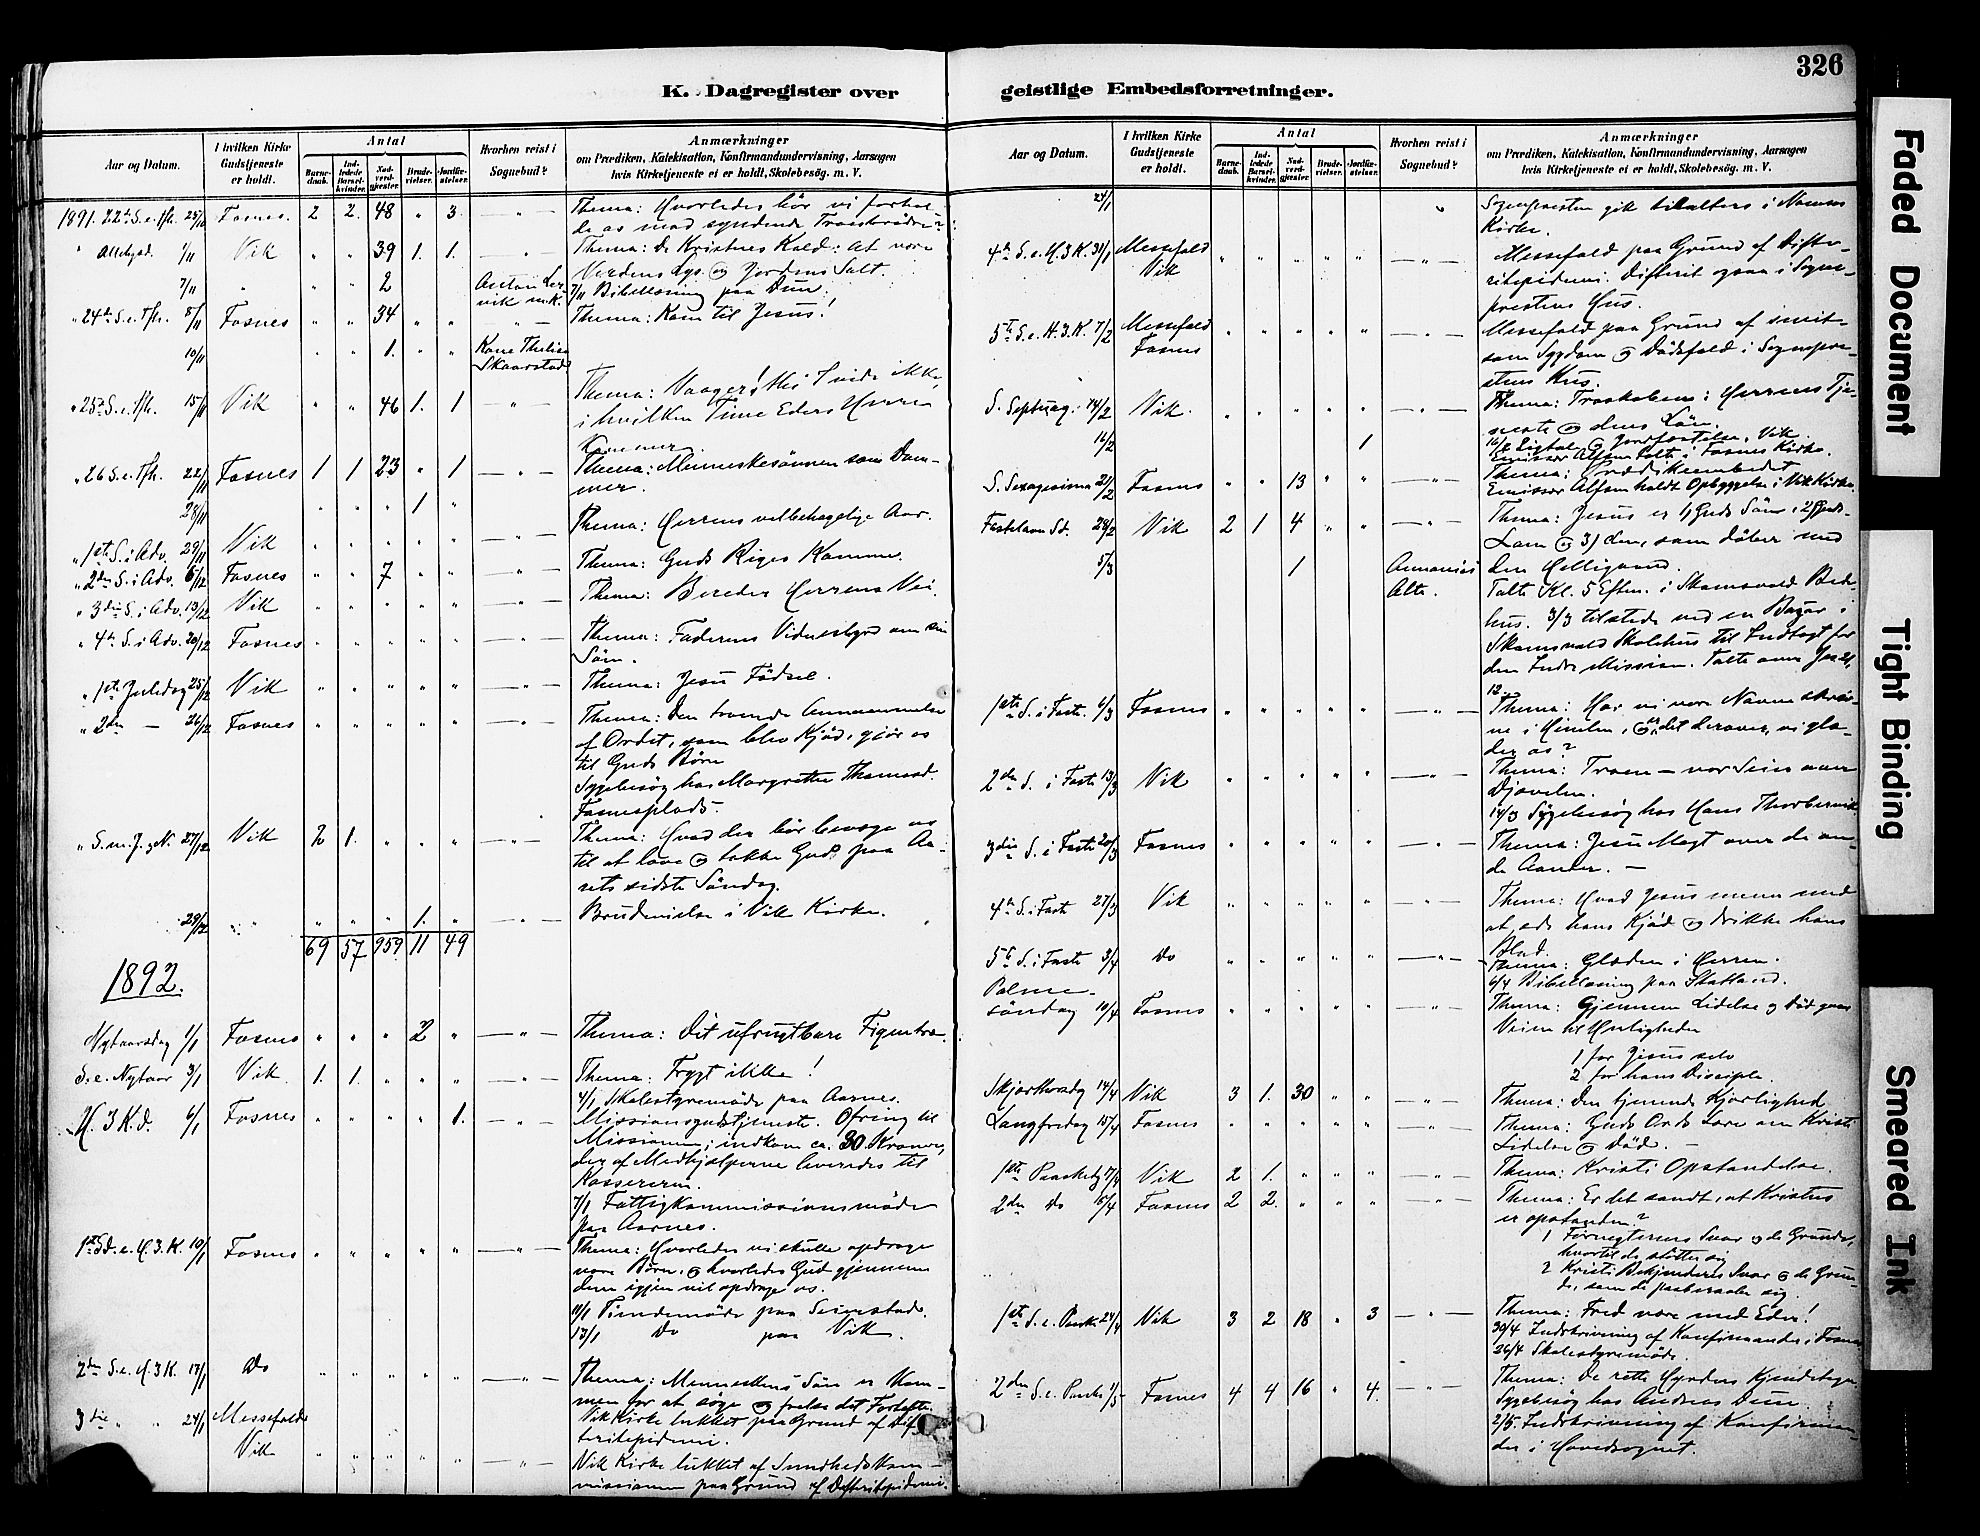 326
K. Dagregister over geistlige Embedsforretninger.
Aar og Datum. I hvilken Kirke Gudstjeneste er holdt. Antal Barnedaab. Indledede Barselkvinder. Nadverdgjester. Brudevielser. Jordfæstelser. Hvorhen reist i Sognebud? Anmærkninger om Prædiken, Katekisation, Konfirmandundervisning, Aarsagen hvis Kirketjeneste ei er holdt, Skolebesøg. m. V.
1891. 22de S. e. Tfh. 25/10 Fosnes. 2 2. 48 " 3. — " — Thema: Hvorledes bør vi forhol-
de os mod syndende Troesbrødre?
" Allehgsd. 1/11 Vik " " 39 1. 1. — " — Thema: De Kristnes Kald: at være
Verdens Lys og Jordens Salt.
7/11 " " " 2 Anton Ler-
vik m.K. 7/11 Bibellæsning paa Duun.
" 24de S. e. Tfh. 8/11 Fosnes " " 34 " " — " — Thema: Kom til Jesus!
10/11 " " 1. " " Kone
Skaarstad
" 25de S. e. Tfh. 15/11 Vik " " 46 1. 1 — " — Thema: Vaager! thi I vide ikke,
i hvilken Time Eders Herre
Kommer.
" 26 S. e. Tfh. 22/11 Fosnes 1 1 23 " 1 — " — Thema: Menneskesønnen som Dom-
mer.
28/11 " " " 1 "
" 1ste S. i Adv. 29/11 Vik " " " " " — " — Thema: Herrens velbehagelige Aar.
" 2den S. i Adv. 6/12 Fosnes " " 7 " " — " — Thema: Guds Riges Komme.
" 3die S. i Adv. 13/12 Vik " " " " " — " — Thema: Bereder Herrens Vei.
" 4de S. i Adv. 20/12 Fosnes " " " " " — " — Thema: Faderens Vidnesbyrd om sin
Søn.
" 1ste Juledag 25/12 Vik " " " " " — " — Thema: Jesu Fødsel.
" 2den — 26/12 Fosnes " " " " " — " — Thema: Den troende Annammelse
af Ordet, som blev Kjød, gjør os
til Guds Børn
Sygebesøg hos Margrethe
Fosnesplads.
" S. m. J. og N. 27/12 Vik 2 1. " " " — " — Thema: Hvad der bør bevæge os
til at love og takke Gud paa Aa-
rets sidste Søndag.
29/12 " " " " 1. " — " — Brudevielse i Vik Kirke.
69 57 959 11 49
1892.
Nytaarsdag 1/1 Fosnes " " " 2 " — " — Thema: Det ufrugtbare Figentræ.
S. e. Nytaar 3/1 Vik. 1. 1. " " " — " — Thema: Frygt ikke!
4/1 Skolestyremøde paa Aarnes.
H. 3 K. d. 6/1 Fosnes " " " " 1. — " — Missionsgudstjeneste. Ofring til
Missionen; indkom ca. 30 Kroner,
der af Medhjælperne leveredes til
Kassereren.
7/1 Fattigkommissionsmøde
paa Aarnes.
1ste Sd. e. H. 3. K. 10/1 Fosnes " " " " " — " — Thema: Hvorledes vi skulle opdrage
vore Børn, og hvorledes Gud gjennem
dem igjen vil opdrage os.
11/1 Tiendemøde paa Seierstad.
13/1 Do paa Vik.
2den S. e. H. 3 K. 17/1 Do " " " " " — " — Thema: Menneskens Søn er kom-
men for at søge og frelse det Fortabte.
3die " " 24/1 Messefald Vik Kirke lukket paa Grund af Dif-
teritepidemi.
Vik " " " " " — " — Vik Kirke lukket af Sundhedskom-
missionen paa Grund af Difteritepidemi.
Aar og Datum. I hvilken Kirke Gudstjeneste er holdt. Antal Barnedaab. Indledede Barselkvinder. Nadverdgjester. Brudevielser. Jordfæstelser. Hvorhen reist i Sognebud? Anmærkninger om Prædiken, Katekisation, Konfirmandundervisning, Aarsagen hvis Kirketjeneste ei er holdt, Skolebesøg. m. V.
24/1 " Sognepresten gik tilalters i Namsos
Kirke.
4de S. e. H. 3 K. 31/1 Messefald
Vik " " " " " — " — Messefald paa Grund af Difte-
ritepidemi: Difterit ogsaa i Sogne-
prestens Hus.
5te S. e. H. 3. K. 7/2 Messefald
Fosnes " " " " " — " — Messefald paa Grund af smit-
som Sygdom og Dødsfald i Sognepre-
stens Hus.
S. Septuag. 14/2 Vik. " " " " " — " — Thema: Troskaben i Herrens Tje-
neste og dens Løn.
16/2 1 16/2 Ligtale og Jordfæstelse, Vik.
Emissær talte i Fosnes Kirke.
S. Sexagesima 21/2 Fosnes " " 13 " " — " — Thema: Prædikeembedet
Emissær holdt Opbyggelse i Vik Kirke.
Fastelavns Sd. 28/2 Vik 2 1 4 " " — " — Thema: Jesus er 1) Guds Søn, 2) Guds
Lam og 3) den, som døber med
den Helligaand.
5/3 1 Annanias
Alte. Talte Kl. 5 Efterm. i Skomsvold Bede-
hus. 3/3 tilstede ved en Bazar i
Skomsvold Skolehus til Indtægt for
den Indre Mission. Talte over Jes 21,
12.
1ste S. i Faste 6/3 Fosnes " " " " " — " — Thema: Har vi vore Navne skrev-
ne i Himlen, og er det derover, vi glæ-
der os?
2den S. i Faste 13/3 Vik " " " " " — " — Thema: Troen — vor Seier over
Djævelen.
14/3 Sygebesøg hos Hans
3die S. i Faste 20/3 Fosnes " " " " " — " — Thema: Jesu Magt over de on-
de Aander. —
4de S. i Faste 27/3 Vik " " " " " — " — Thema: Hvad Jesus mener med
at æde hans Kjød og drikke hans
Blod.
5te S. i Faste 3/4 Do " " " " " — " — Thema: Glæden i Herren.
6/4 Bibellæsning paa Skatland.
Palme-
søndag 10/4 Fosnes " " " " " — " — Thema: Gjennem Lidelse og Død gaar
Veien til Herligheden
1 for Jesus selv
2 for hans Disciple.
Skjærthorsdg 14/4 Vik 3 1. 30 " " — " — Thema: Den tjenende Kjærlighed
Langfredag 15/4 Fosnes " " " " " — " — Thema: Guds Ords Lære om Kristi
Lidelse og Død. —
1ste Paaskedg 17/4 Vik 2 1. " " " — " — Thema: Kristi Opstandelse.
2den Do 18/4 Fosnes 2 2. " " " — " — Thema: Er det sandt, at Kristus
er opstanden?
1, Fornegternes Svar og de Grunde,
hvortil de støtter sig
2 Kristi Bekjenderes Svar og de Grun-
de, som de paaberaaber sig.
1ste S. e. Paaske 24/4 Vik 3 2 18 " 3 — " — Thema: Fred være med Eder!
30/4 Indskrivning af Konfirmander i Fosnes
26/4 Skolestyremøde.
2den S. e. Paaske 1/5 Fosnes 4 4 16 " 4. — " — Thema: De rette Hyrders Kjendetegn
Sygebesøg hos Andreas Duun.
2/5. Indskrivning af Konfirman-
der i Hovedsognet.
Faded Document
Tight Binding
Smeared Ink